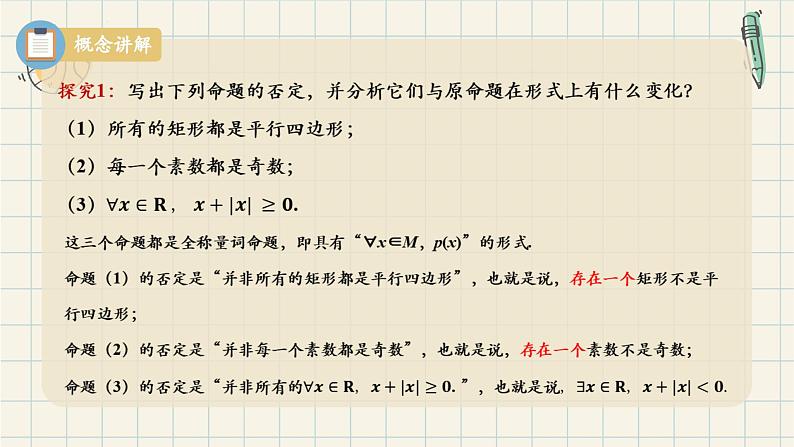 概念讲解
探究1：写出下列命题的否定，并分析它们与原命题在形式上有什么变化？
（1）所有的矩形都是平行四边形；
（2）每一个素数都是奇数；
（3）∀x∈R， x+|x| ≥0.
这三个命题都是全称量词命题，即具有“∀x∈M，p(x)”的形式.
命题（1）的否定是“并非所有的矩形都是平行四边形”，也就是说，存在一个矩形不是平
行四边形；
命题（2）的否定是“并非每一个素数都是奇数”，也就是说，存在一个素数不是奇数；
命题（3）的否定是“并非所有的∀x∈R，x+|x|≥0.”，也就是说，∃x∈R，x+|x|<0.